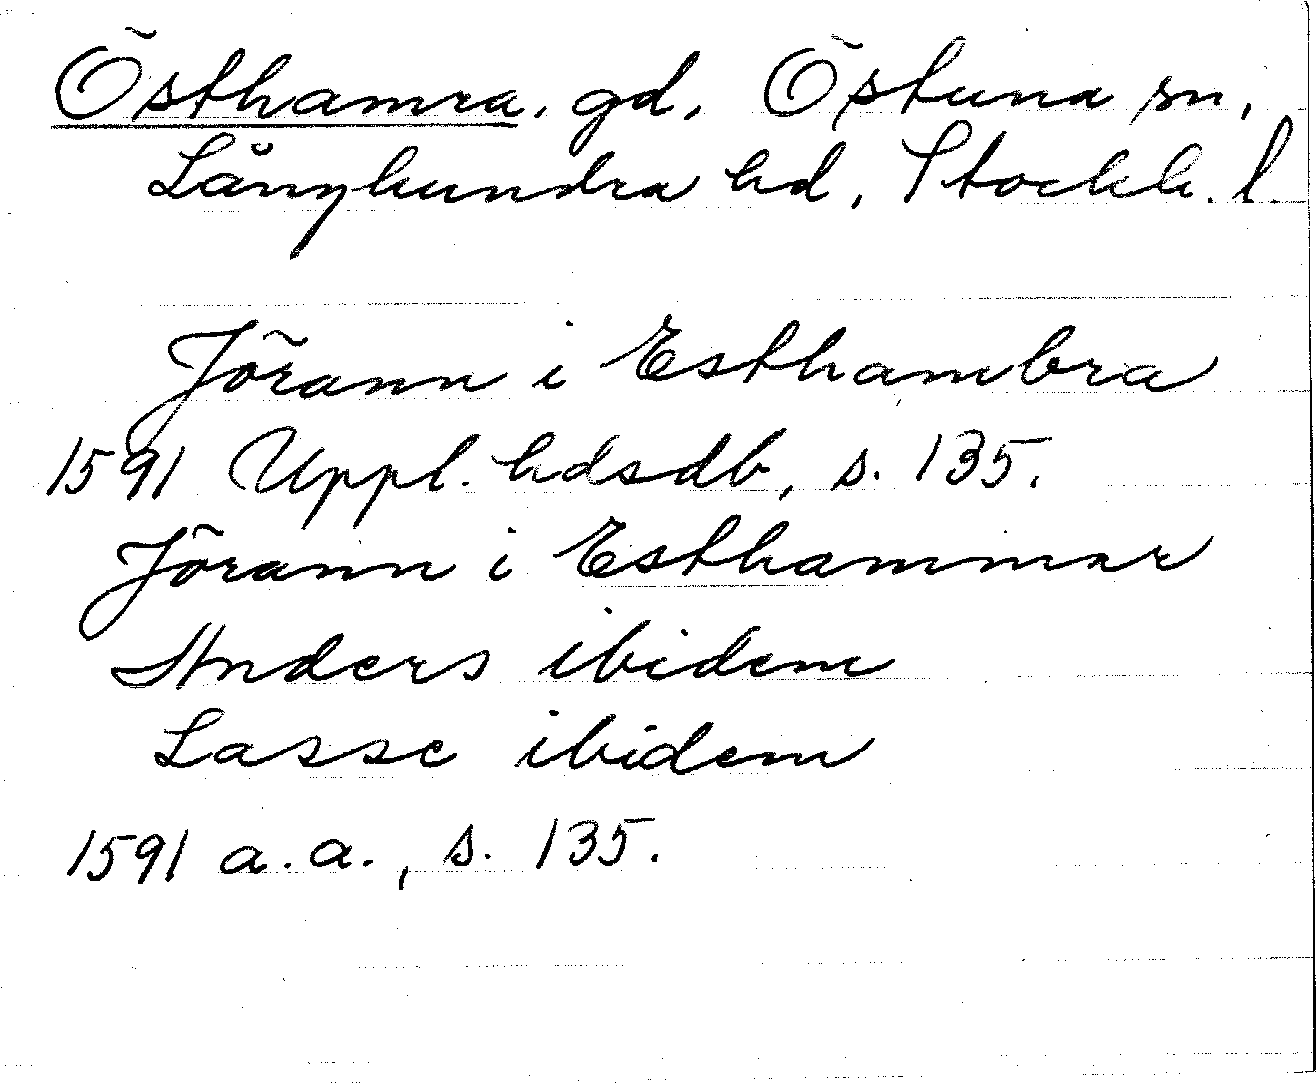 Östhamra, gd, Östuna sn,
Långhundra hd, Stockh. l.
Jörann i Esthambra
1591 Uppl. hdsdb, s. 135.
Jörann i Esthammar
Anders ibidem
Lasse ibidem
1591 a.a., s. 135.